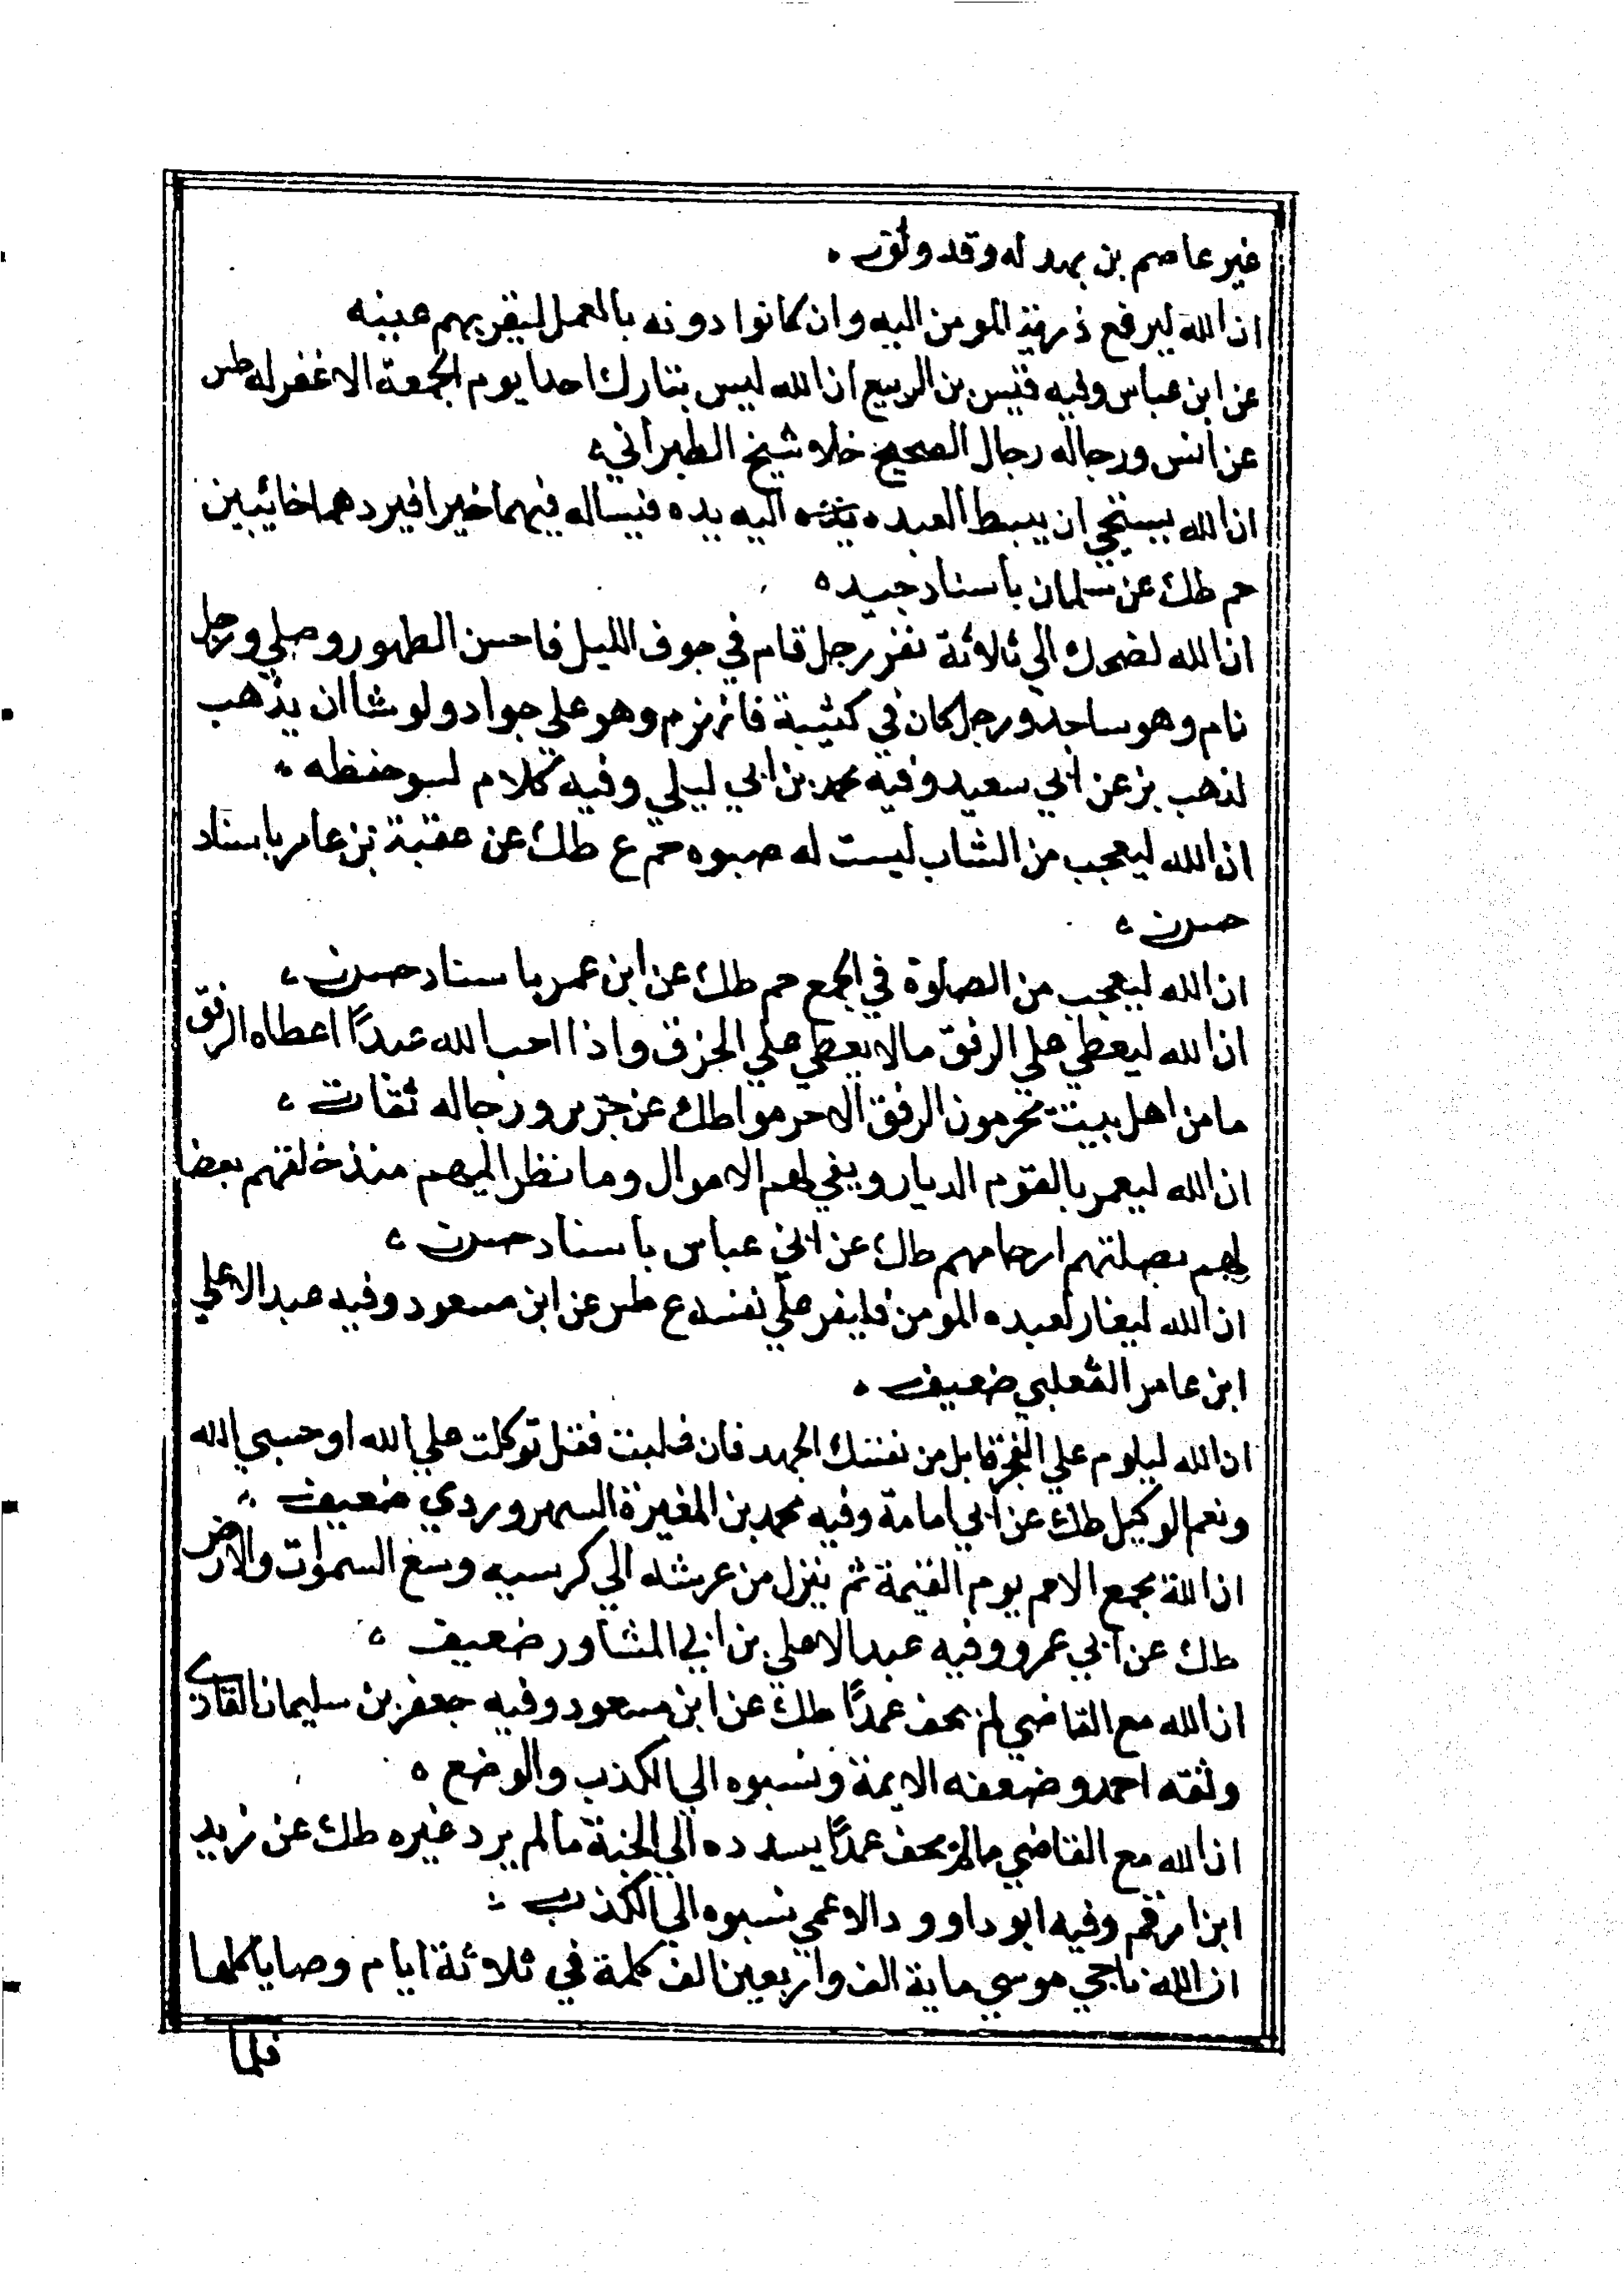 غير عاصم بن بهدله وقد وثق ،
ان الله ليرفع ذرية المومن اليه وان كانوا دونه بالعمل ليقر بهم عينه
عن ابن عباس وفيه قيس بن الربيع ان الله ليس بتارك احدا يوم الجمعة الا غفر له طس
عن انس ورجاله رجال الصحيح خلا شيخ الطبراني ،
ان الله يستحي ان يبسط العبد اليه يده فيساله فيهما خيرا فيردهما خائبين
حم طك عن سلمان باسناد جيد ،
ان الله لضحك الي ثلاثة نفر رجل قام في جوف الليل فاحسن الطهور وصلي ورجل
نام وهو ساجد ورجل كان في كتيبة فانهزم وهو علي جواد ولو شا ان يذهب
لذهب بز عن ابي سعيد وفيه محمد بن ابي ليلي وفيه كلام لسو حفظه ،
ان الله ليعجب من الشاب ليست له صبوه حم ع طك عن عقبة بن عامر باسناد
حسن ،
ان الله ليعجب من الصلوة في الجمع حم طك عن ابن عمر باسناد حسن ،
ان الله ليعطي علي الرفق مالا يعطي علي الخرق واذا احب الله عبدًا اعطاه الرفق
ما من اهل بيت يحرمون الرفق الا حرموا طك عن جرير ورجاله ثقات ،
ان الله ليعمر بالقوم الديار و لهم الاموال وما نظر اليهم منذ خلقهم بعضا
لهم بصلتهم ارحامهم طك عن ابن عباس باسناد حسن ،
ان الله ليغار لعبده المومن فليغر علي نفسه ع طس عن ابن مسعود وفيه عبد الاعلي
ابن عامر الثعلبي ضعيف ،
ان الله ليلوم علي العجز فابل من نفسك الجهد فان غلبت فقل توكلت علي الله او حسبي الله
ونعم الوكيل طك عن ابي امامة وفيه محمد بن المغيرة السهروردي ضعيف ،
ان الله يجمع الامم يوم القيمة ثم ينزل من عرشه الي كرسيه وسع السموات والارض
طك عن ابي عمرو وفيه عبد الاعلي بن ابي المشاور ضعيف ،
ان الله مع القاضي لم يحف عمدًا طك عن ابن مسعود وفيه جعفر بن سليمان القاري
وثقه احمد وضعفه الايمة ونسبوه الي الكذب والوضع ،
ان الله مع القاضي مالم يحف عمدًا يسدده الي الجنة مالم يرد غيره طك عن زيد
ابن ارقم وفيه ابو داوود الاعمي نسبوه الي الكذب ،
ان الله ناجي موسي ماية الف واربعين الف كلمة في ثلاثة ايام وصايا كلها
فلما